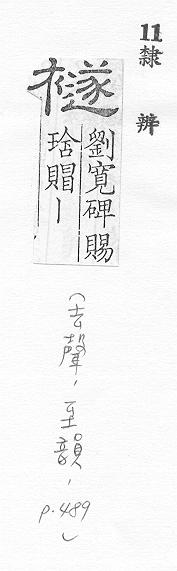 11 隸辨
襚
劉寬碑賜
琀賵丨
(去聲,至韻,p.489)